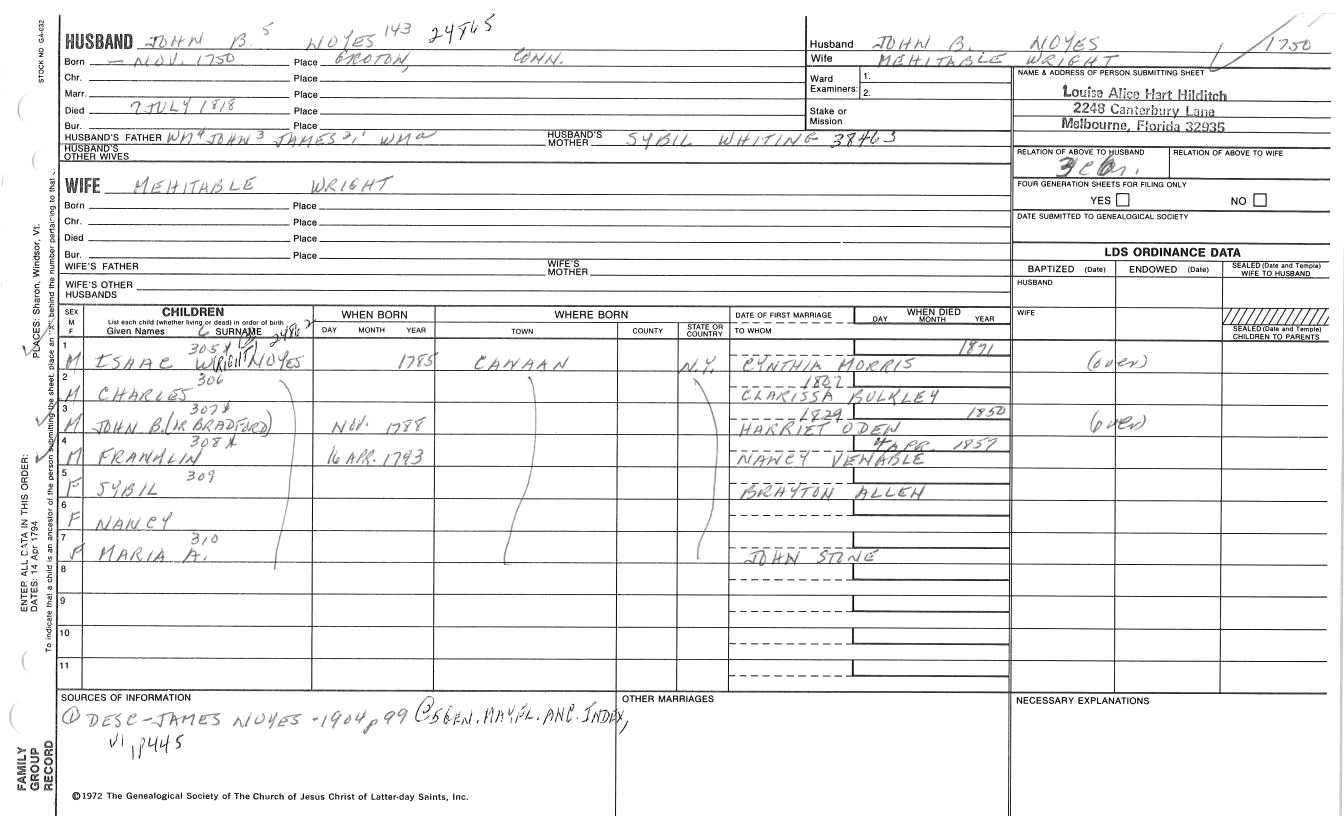 STOCK NO GA-032
HUSBAND JOHN B. 5 NOYES 143 24865
Born — NOV. 1750 Place GROTON, CONN.
Chr. Place
Marr. Place
Died 7 JULY 1818 Place
Bur. Place
HUSBAND'S FATHER WM 4 JOHN 3 JAMES 2, 1 WM a HUSBAND'S MOTHER SYBIL WHITING 38463
HUSBAND'S OTHER WIVES
Husband JOHN B. NOYES 1750
Wife MEHITABLE WRIGHT
Ward Examiners: 1.
2.
Stake or Mission
NAME & ADDRESS OF PERSON SUBMITTING SHEET
Louise Alice Hart Hilditch
2248 Canterbury Lane
Melbourne, Florida 32935
RELATION OF ABOVE TO HUSBAND RELATION OF ABOVE TO WIFE
FOUR GENERATION SHEETS FOR FILING ONLY
YES NO
DATE SUBMITTED TO GENEALOGICAL SOCIETY
WIFE MEHITABLE WRIGHT
Born Place
Chr. Place
Died Place
Bur. Place
WIFE'S FATHER WIFE'S MOTHER
WIFE'S OTHER HUSBANDS
LDS ORDINANCE DATA
BAPTIZED (Date) ENDOWED (Date) SEALED (Date and Temple) WIFE TO HUSBAND
HUSBAND
WIFE
SEALED (Date and Temple) CHILDREN TO PARENTS
SEX M F
CHILDREN
List each child (whether living or dead) in order of birth
Given Names 6 SURNAME
WHEN BORN
DAY MONTH YEAR
WHERE BORN
TOWN COUNTY STATE OR COUNTRY
DATE OF FIRST MARRIAGE
TO WHOM
WHEN DIED
DAY MONTH YEAR
1 305 1871
M ISAAC WRIGHT NOYES 1785 CANAAN N.Y. CYNTHIA MORRIS (over)
2 306 1802
M CHARLES CLARISSA BULKLEY
3 307 1829 1850
M JOHN B. (or BRADFORD) NOV. 1788 HARRIET ODEN (over)
4 308 4 APR. 1857
M FRANKLIN 16 APR. 1793 NANCY VENABLE
5 309
F SYBIL BRAYTON ALLEN
6
F NANCY
7 310
F MARIA A. JOHN STONE
8
9
10
11
SOURCES OF INFORMATION
① DESC-JAMES NOYES -1904 p 99 ② 5 GEN. MAYFL. ANC. INDEX,
V1, p445
OTHER MARRIAGES
NECESSARY EXPLANATIONS
©1972 The Genealogical Society of The Church of Jesus Christ of Latter-day Saints, Inc.
FAMILY GROUP RECORD
ENTER ALL DATA IN THIS ORDER:
DATES: 14 Apr 1794
PLACES: Sharon, Windsor, Vt.
To indicate that a child is an ancestor of the person submitting the sheet, place an "X" behind the number pertaining to that